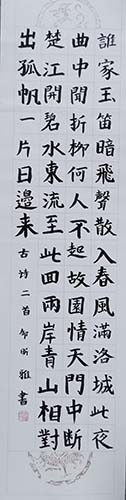 誰家玉笛暗飛聲散入春風滿洛城此夜
曲中聞折柳何人不起故園情天門中断
楚江開碧水東流至此回兩岸青山相對
出孤帆一片日邊来古诗二首
雅書